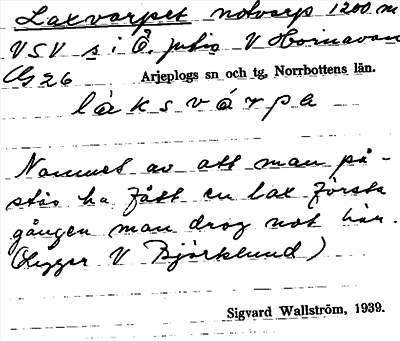 Laxvarpet notvarp 1200 m
VSV s i Ö. V Hornavan
G 26 Arjeplogs sn och tg, Norrbottens län.
làksvárpə
Namnet av att man på-
stås ha fått en lax första
gången man drog not här.
(Ligger V Björklund)
Sigvard Wallström, 1939.